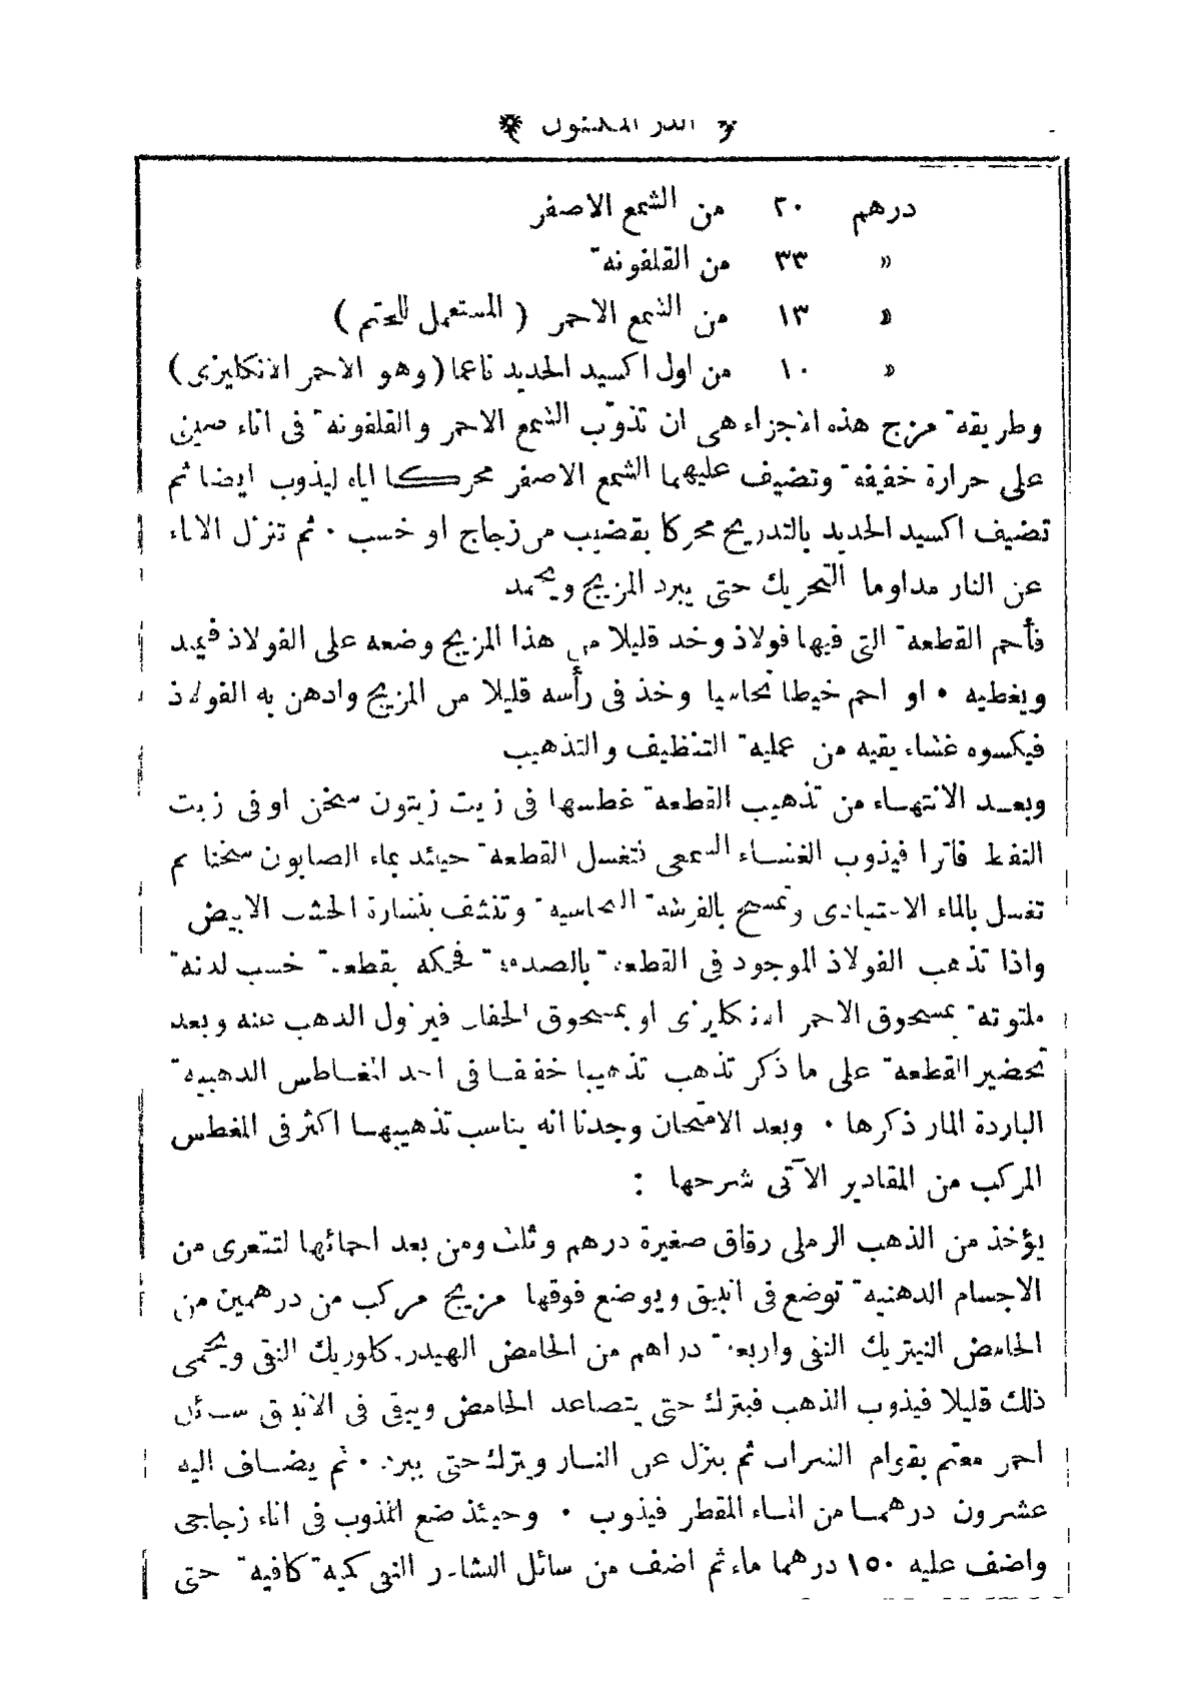 الدر المكنون
درهم ٢٠ من الشمع الاصفر
« ٣٣ من القلفونة
« ١٣ من الشمع الاحمر ( المستعمل للختم )
« ١٠ من اول اكسيد الحديد ناعما ( وهو الاحمر الانكليزى )
وطريقة مزج هذه الاجزاء هى ان تذوّب الشمع الاحمر والقلفونة فى اناء صينى
على حرارة خفيفة وتضيف عليهما الشمع الاصفر محركا اياه ليذوب ايضا ثم
تضيف اكسيد الحديد بالتدريج محركا بقضيب من زجاج او خشب ٠ ثم تنزل الاناء
عن النار مداوما التحريك حتى يبرد المزيج ويجمد
فأحم القطعة التى فيها فولاذ وخذ قليلا من هذا المزيج وضعه على الفولاذ فيمد
ويغطيه ٠ او احم خيطا نحاسيا وخذ فى رأسه قليلا من المزيج وادهن به الفولاذ
فيكسوه غشاء يقيه من عملية التنظيف والتذهيب
وبعد الانتهاء من تذهيب القطعة غطسها فى زيت زيتون سخن او فى زيت
النفط فاترا فيذوب الغشاء الشمعى فتغسل القطعة حينئذ بماء الصابون سخنا ثم
تغسل بالماء الاعتيادى وتمسح بالفرشة النحاسية وتنشف بنشارة الخشب الابيض
واذا تذهب الفولاذ الموجود فى القطعة بالصدفة فحكه بقطعة خشب لدنة
ملتوتة بمسحوق الاحمر الانكليزى او بمسحوق الخفان فيزول الذهب عنه وبعد
تحضير القطعة على ما ذكر تذهب تذهيبا خفيفا فى احد المغاطس الذهبية
الباردة المار ذكرها ٠ وبعد الامتحان وجدنا انه يناسب تذهيبها اكثر فى المغطس
المركب من المقادير الآتى شرحها :
يؤخذ من الذهب الرملى رقاق صغيرة درهم وثلث ومن بعد احمائها لتتعرى من
الاجسام الدهنية توضع فى انبيق ويوضع فوقها مزيج مركب من درهمين من
الحامض النيتريك النقى واربعة دراهم من الحامض الهيدروكلوريك النقى ويحمى
ذلك قليلا فيذوب الذهب فيترك حتى يتصاعد الحامض ويبقى فى الانبيق سائل
احمر معتم بقوام الشراب ثم ينزل عن النار ويترك حتى يبرد ٠ ثم يضاف اليه
عشرون درهما من الماء المقطر فيذوب ٠ وحينئذ ضع المذوب فى اناء زجاجى
واضف عليه ١٥٠ درهما ماء ثم اضف من سائل النشادر النقى كمية كافية حتى